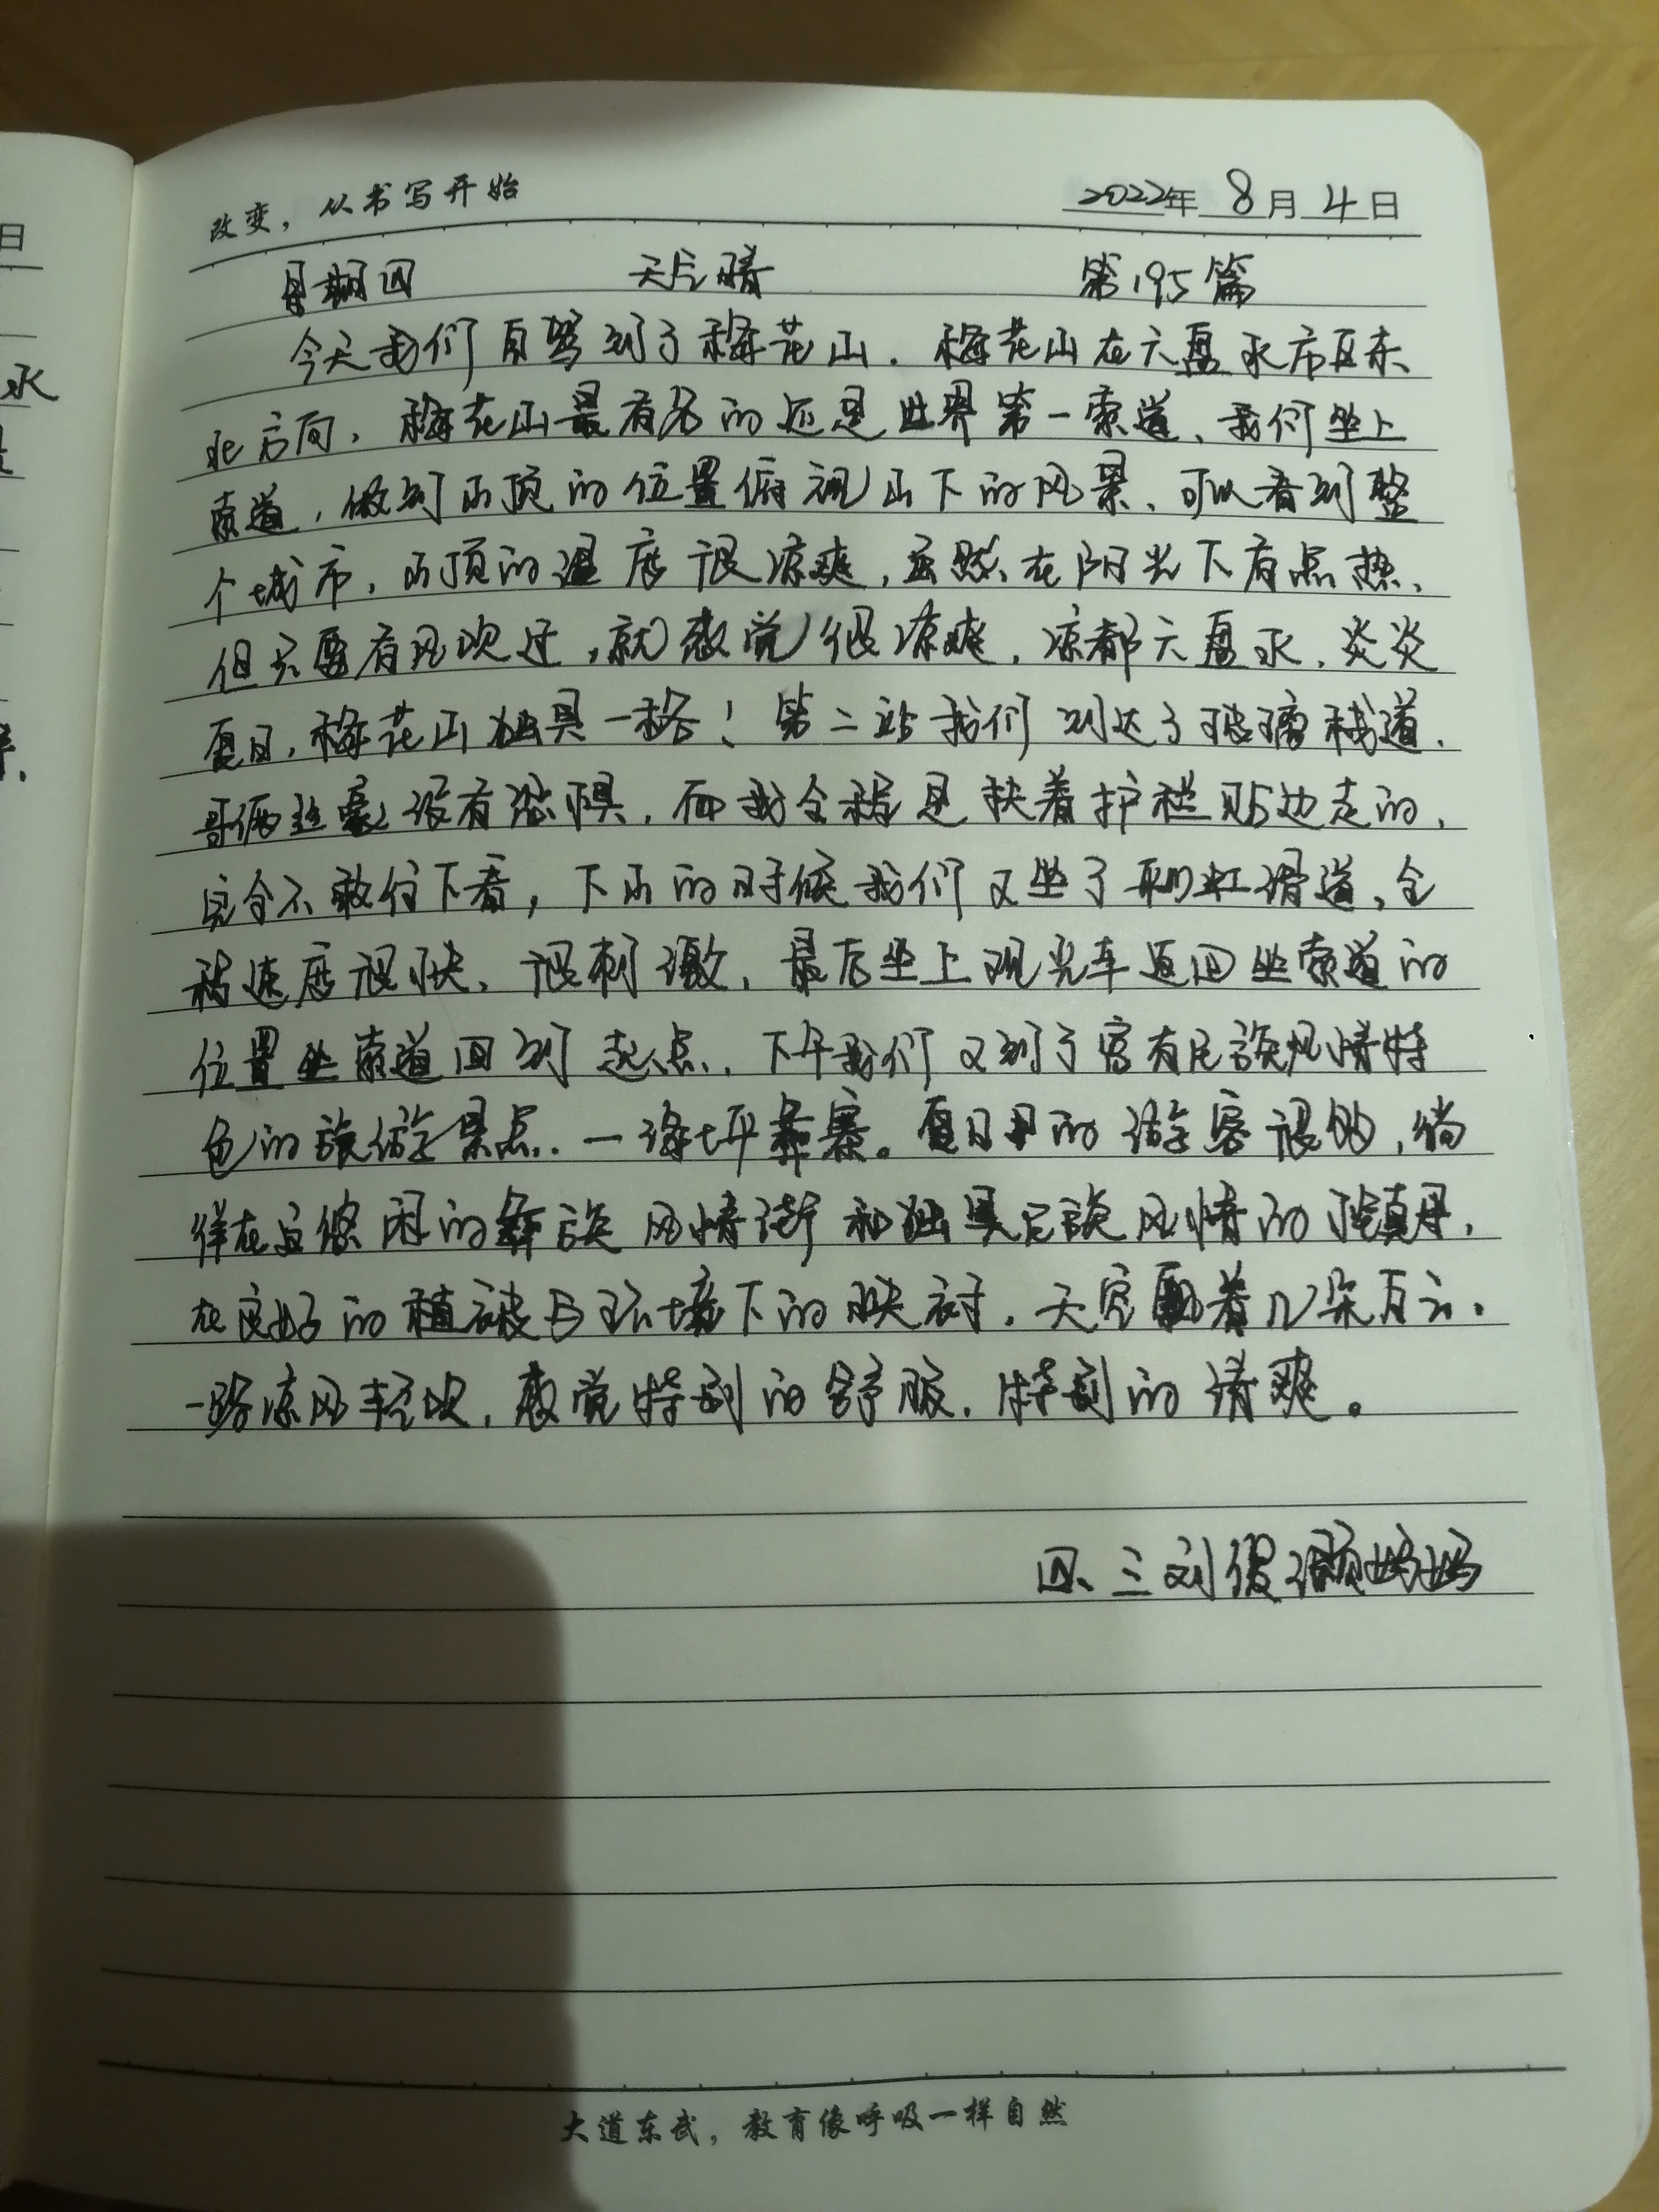 改变，从书写开始
2022年 8月 4日
星期四 天气晴 第195篇
今天我们自驾到了梅花山，梅花山在六盘水市区东
北方向，梅花山最有名的还是世界第一索道，我们坐上
索道，做到山顶的位置俯视山下的风景，可以看到整
个城市，山顶的温度很凉爽，虽然在阳光下有点热，
但只要有风吹过，就感觉很凉爽，凉都六盘水，炎炎
夏日，梅花山独具一格！第二站我们到达了玻璃栈道，
哥俩丝毫没有恐惧，而我全程是扶着护栏贴边走的，
完全不敢往下看，下山的时候我们又坐了彩虹滑道，全
程速度很快，很刺激，最后坐上观光车返回坐索道的
位置坐索道回到起点，下午我们又到了富有民族风情特
色的旅游景点，一海坪彝寨。夏日里的游客很多，徜
徉在宜悠闲的彝族风情街和独具民族风情的小镇里，
在良好的植被与环境下的映衬，天空飘着几朵白云，
一路凉风轻吹，感觉特别的舒服，特别的清爽。
四、三刘俍灏妈妈
大道东武，教育像呼吸一样自然
日
水